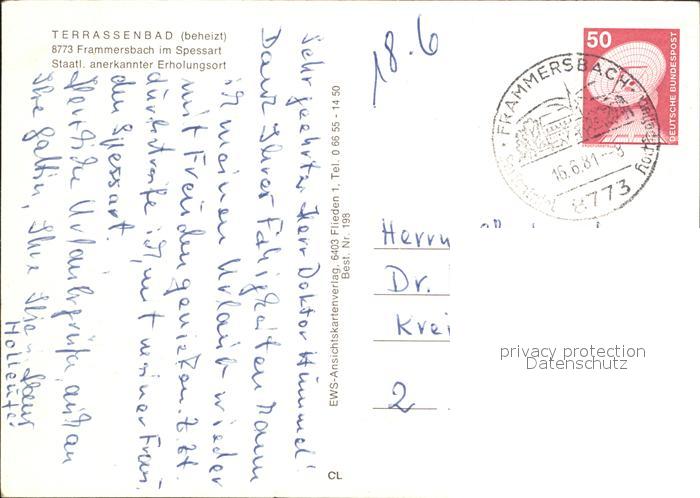 TERRASSENBAD (beheizt)
8773 Frammersbach im Spessart
Staatl. anerkannter Erholungsort
18.6
Sehr geehrter Herr Doktor Hümmel!
Dank Ihrer Fähigkeiten kann
ich meinen Urlaub wieder
mit Freuden genießen. Z. Zt.
durchstreife ich mit meiner Frau
den Spessart.
Herzliche Urlaubsgrüße, auch an
Ihre Gattin, Ihre
EWS-Ansichtskartenverlag, 6403 Flieden 1, Tel. 0 66 55 - 14 50
Best. Nr. 198
CL
50
DEUTSCHE BUNDESPOST
FRAMMERSBACH
16.6.81-9
8773
Herrn
Dr.
Krei
2
privacy protection
Datenschutz